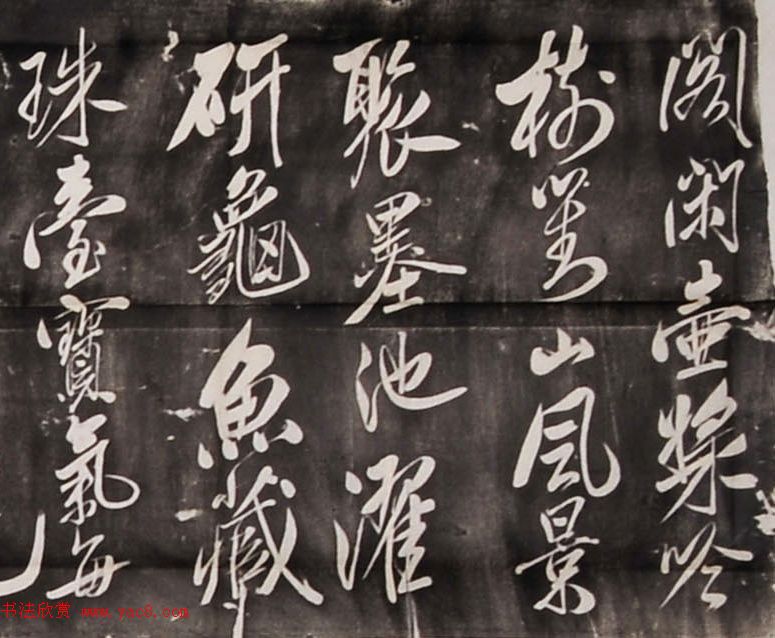 閣閑壺吟
樹對山風景
聚墨池濯
研龜魚藏
珠臺寶氣每
书法欣赏 www.yac8.com